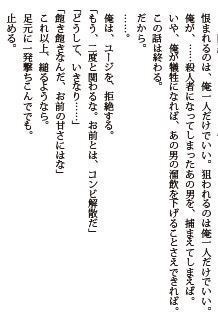 恨まれるのは、俺一人だけでいい。狙われるのは俺一人だけでいい。
俺が、……殺人者になってしまったあの男を、捕まえてしまえば。
いや、俺が犠牲になれば、あの男の溜飲を下げることさえできれば。
この話は終わる。
だから。
……。
俺は、ユージを、拒絶する。
「もう、二度と関わるな。お前とは、コンビ解散だ」
「どうして、いきなり……」
「飽き飽きなんだ、お前の甘さにはな」
これ以上、縋るようなら。
足元に一発撃ちこんででも。
止める。